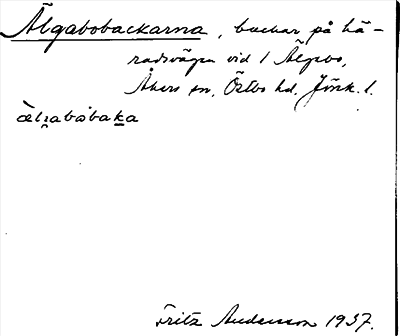 Älgabobackarna, backar på hä-
radsvägen vid 1 Älgabo,
Åkers sn, Östbo hd, Jönk. l.
æ̀lɡabòbaka
Fritz Andersson 1937.